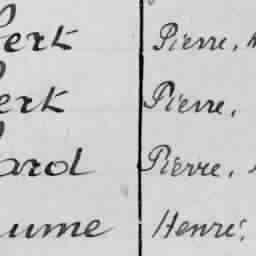 ert Pierre,
ert Pierre,
ard Pierre,
ume Henri,